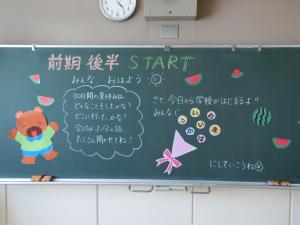 前期 後半 START
みんな、おはよう
30日間の夏休みは
どんなことをしたかな?
どこに行ったかな?
たくさん聞かせてね!
さて、今日から学校がはじまるよ!!
みんなで
にしていこうね